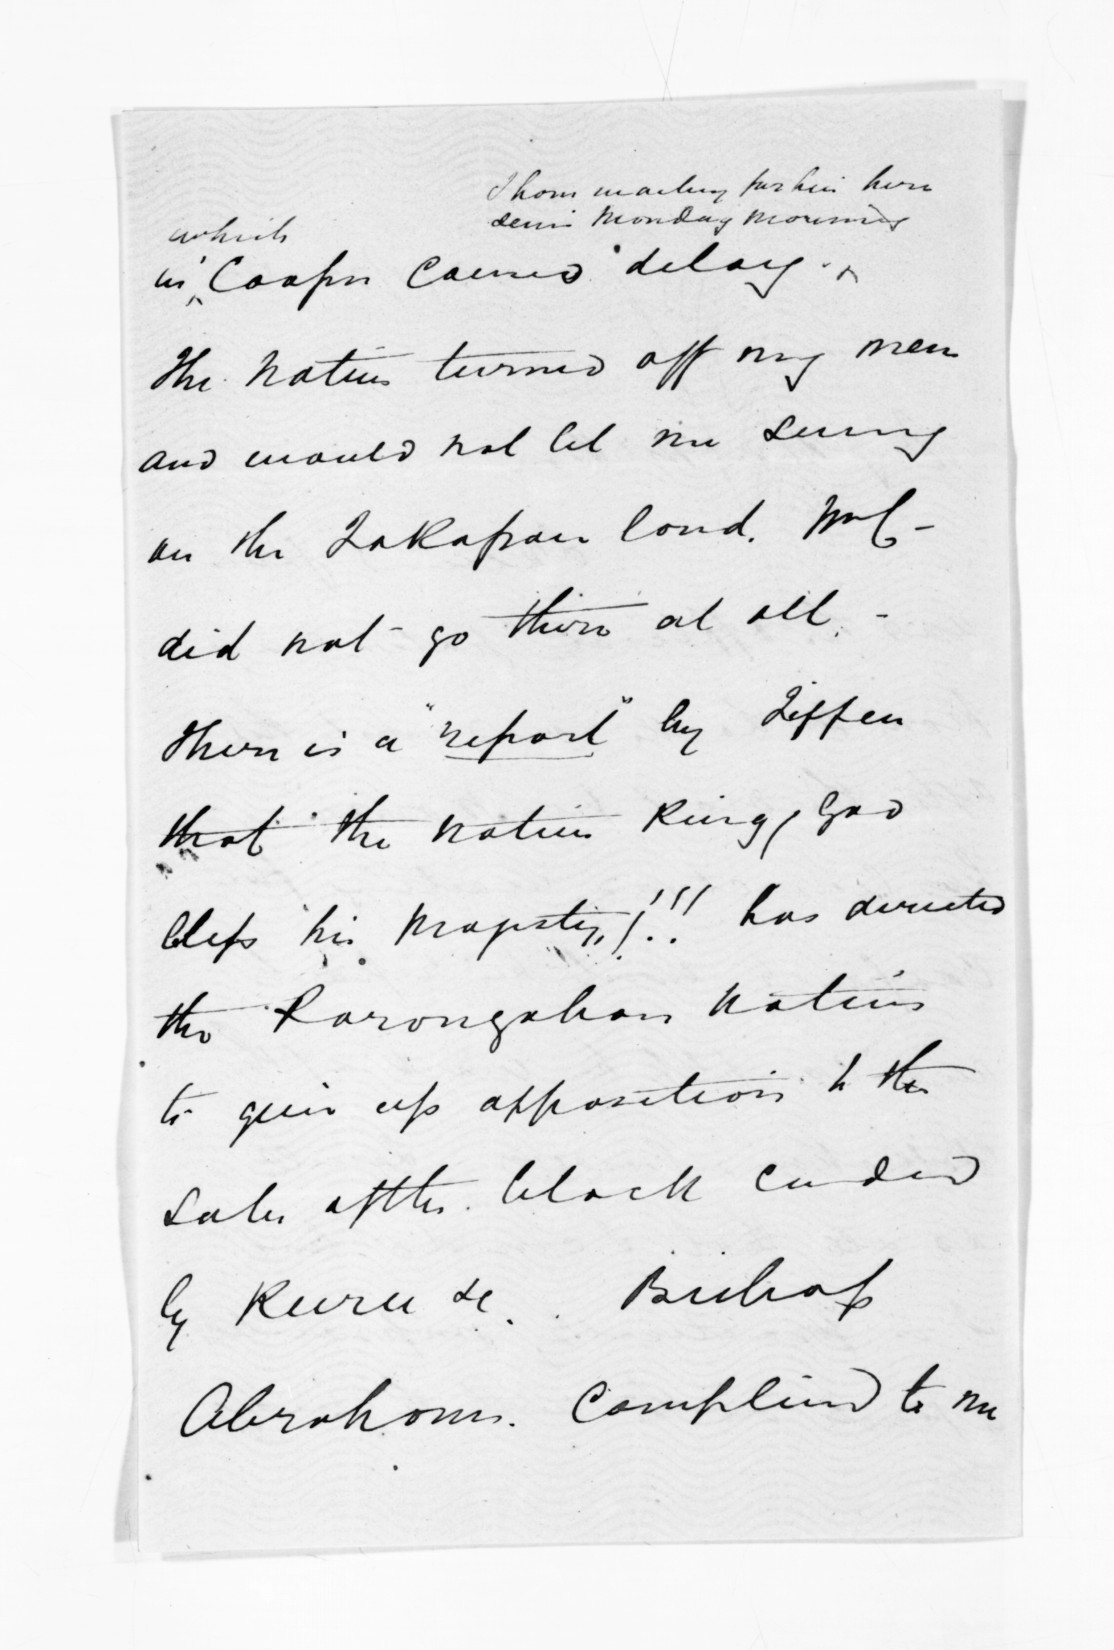 I have waiting for him here
since Monday Morning
which
in Cooper Caused delay.
The Natives turned off my men
and would not let me survey
on the Takapau land.
did not go there at all. -
There is a "report" by Tiffen
that the Natives King, God
bless his Majesty,!!! has directed
the Rarongahau Natives
to give up opposition to the
Sale of the block ceded
by Kuru &c. Bishop
Abraham. Complained to me